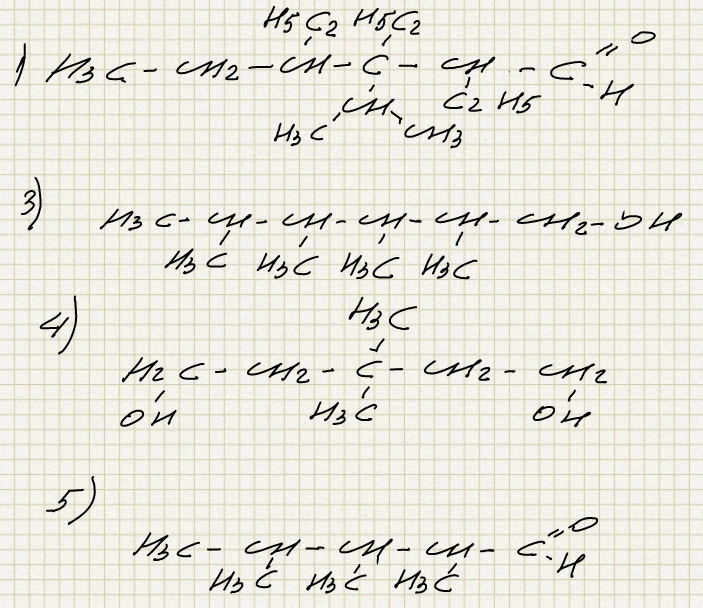 H5C2 H5C2
1) H3C - CH2 - CH - C - CH - C = O
CH C2H5 - H
H3C CH3
3) H3C - CH - CH - CH - CH - CH2 - OH
H3C H3C H3C H3C
H3C
4) H2C - CH2 - C - CH2 - CH2
OH H3C OH
5)
H3C - CH - CH - CH - C = O
H3C H3C H3C - H